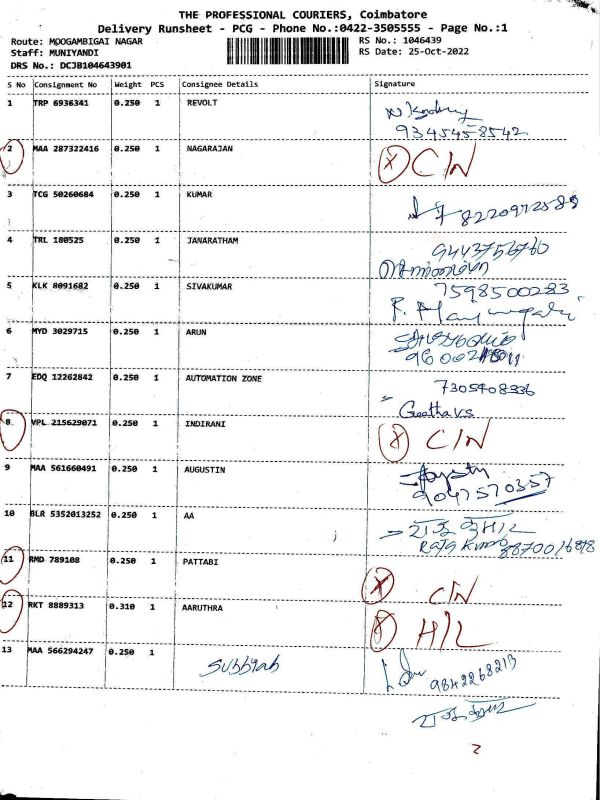 THE PROFESSIONAL COURIERS, Coimbatore
Delivery Runsheet - PCG - Phone No.:0422-3505555 - Page No.:1
Route: MOOGAMBIGAI NAGAR RS No.: 1046439
Staff: MUNIYANDI RS Date: 25-Oct-2022
DRS No.: DCJB104643901
S No Consignment No Weight PCS Consignee Details Signature
1 TRP 6936341 0.250 1 REVOLT
9345458542
2 MAA 287322416 0.250 1 NAGARAJAN X C/N
3 TCG 50260684 0.250 1 KUMAR 8220972589
4 TRL 180525 0.250 1 JANARATHAM 9443756760
5 KLK 8091682 0.250 1 SIVAKUMAR 7598500283
6 MYD 3029715 0.250 1 ARUN
7 EDQ 12262842 0.250 1 AUTOMATION ZONE 7305908336
Geetha v.s
8 VPL 215629071 0.250 1 INDIRANI X C/N
9 MAA 561660491 0.250 1 AUGUSTIN
9047570357
10 BLR 5352013252 0.250 1 AA
Raja Kumar 8870016818
11 RMD 789108 0.250 1 PATTABI X C/N
12 RKT 8889313 0.310 1 AARUTHRA X H/L
13 MAA 566294247 0.250 1 Subbiah 9842268213
2